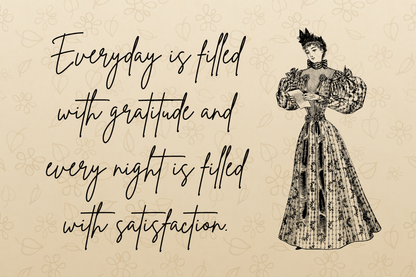 Everyday is filled
with gratitude and
every night is filled
with satisfaction.